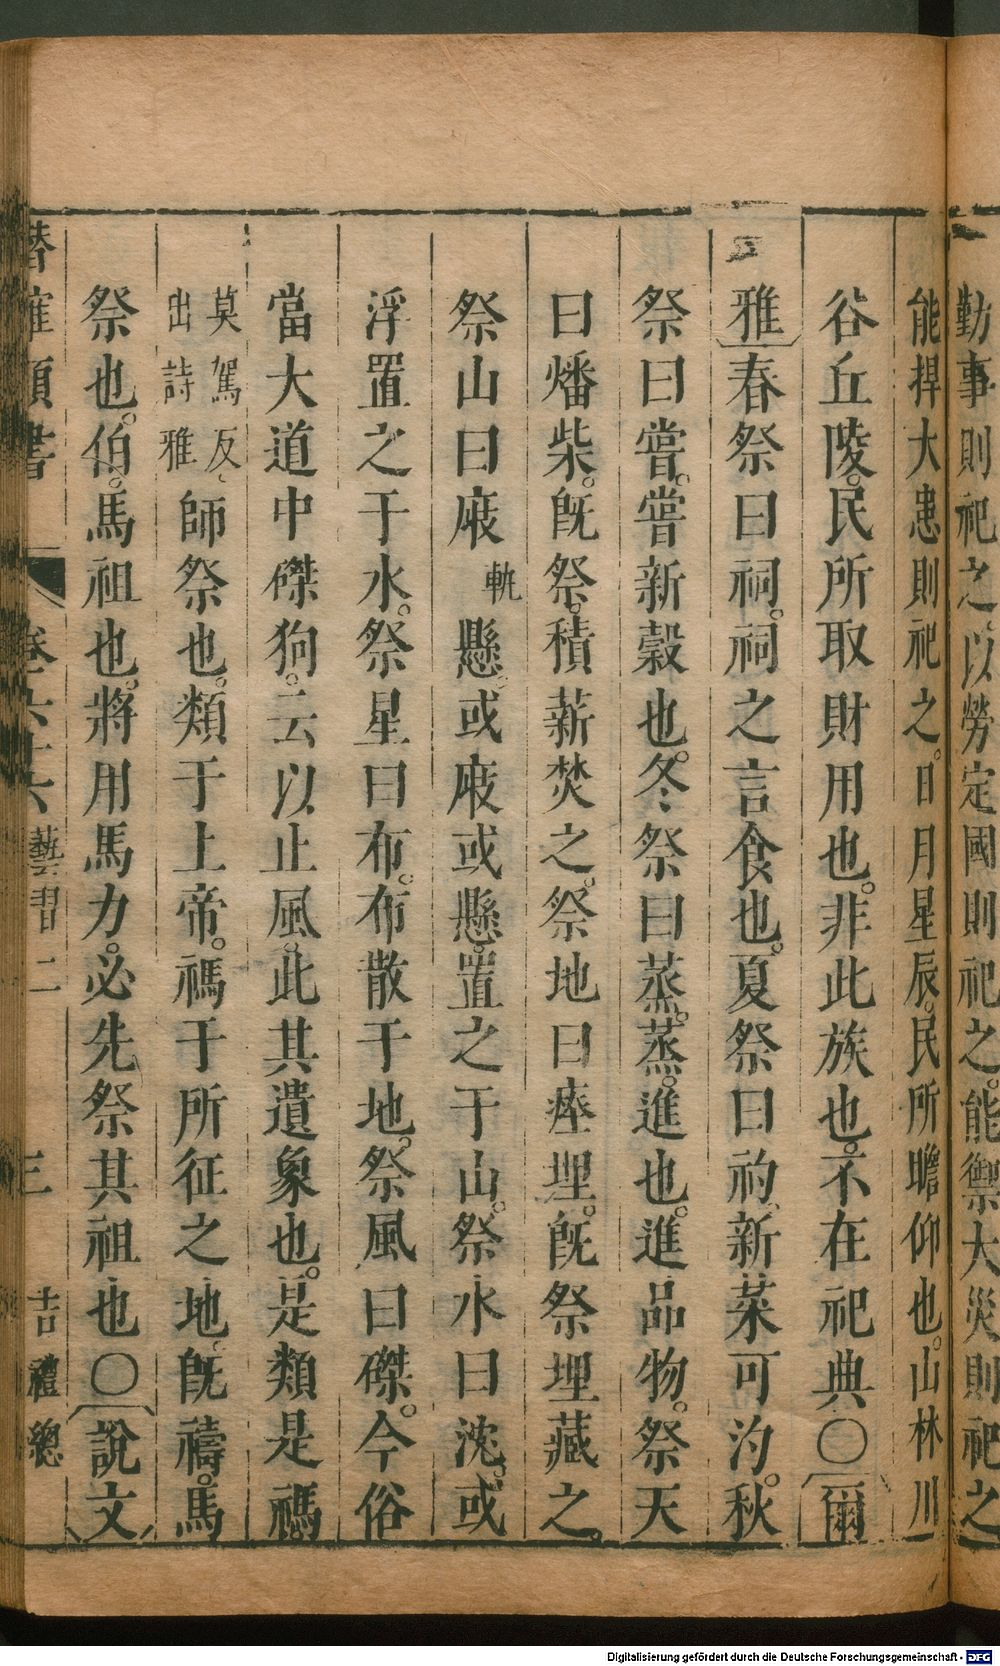 勤事則祀之以勞定國則祀之能禦大災則祀之
能捍大患則祀之日月星辰民所瞻仰也山林川
谷丘陵民所取財用也非此族也不在祀典〇爾
雅春祭曰祠祠之言食也夏祭曰礿新菜可汋秋
祭曰嘗嘗新穀也冬祭曰蒸蒸進也進品物祭天
曰燔柴旣祭積薪焚之祭地曰瘞埋旣祭埋藏之
祭山曰庪軌懸或庪或懸置之于山祭水曰沈或
浮置之于水祭星曰布布散于地祭風曰磔今俗
當大道中磔狗云以止風此其遺象也是類是禡
莫駕反出詩雅師祭也類于上帝禡于所征之地旣禱馬
祭也伯馬祖也將用馬力必先祭其祖也〇說文
潛確類書 卷六十六 藝習二 三 吉禮總
Digitalisierung gefördert durch die Deutsche Forschungsgemeinschaft - DFG